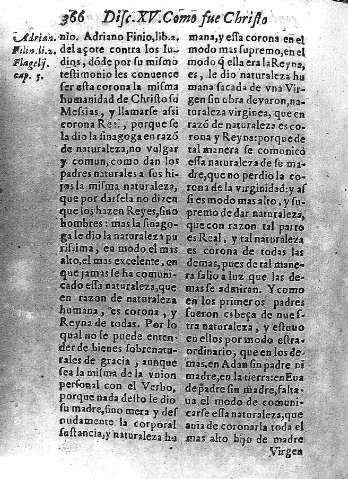 366 Disc. XV. Como fue Christo
Adrian.
Filin. li. 2.
Flagelij.
cap. 5.
nio. Adriano Finio, lib. 2.
del açote contra los Iu-
dios, dõde por su mismo
testimonio les conuence
ser esta corona la misma
humanidad de Christo su
Messias, y llamarse assi
corona Real, porque se
la dio la sinagoga en razõ
de naturaleza, no vulgar
y comun, como dan los
padres naturales a sus hi-
jos la misma naturaleza,
que por darsela no dizen
que los hazen Reyes, sino
hombres: mas la sinago-
ga le dio la naturaleza pu-
rissima, en modo el mas
alto, el mas excelente, en
que jamas se ha comuni-
cado essa naturaleza, que
en razon de naturaleza
humana, es corona, y
Reyna de todas. Por lo
qual no se puede enten-
der de bienes sobrenatu-
rales de gracia, aunque
sea la misma de la vnion
personal con el Verbo,
porque nada desto le dio
su madre, sino mera y des
nudamente la corporal
sustancia, y naturaleza hu
mana, y essa corona en el
modo mas supremo, en el
modo q̃ ella era la Reyna,
es, le dio naturaleza hu
mana sacada de vna Vir-
gen sin obra de varon, na-
turaleza virginea, que en
razõ de naturaleza es co-
rona y Reyna: porque de
tal manera se comunicò
essa naturaleza de su ma-
dre, que no perdio la co-
rona de la virginidad: y as
si es modo mas alto, y su-
premo de dar naturaleza,
que con razon tal parto
es Real, y tal naturaleza
es corona de todas las
demas, pues de tal mane-
ra salio a luz que las de-
mas se admiran. Y como
en los primeros padres
fueron cabeça de nues-
tra naturaleza, y estuuo
en ellos por modo estra-
ordinario, que en los de-
mas, en Adan sin padre ni
madre, en la tierra: en Eua
de padre sin madre, falta-
ua el modo de comuni-
carse essa naturaleza, que
auia de coronar la toda el
mas alto hijo de madre
Virgen